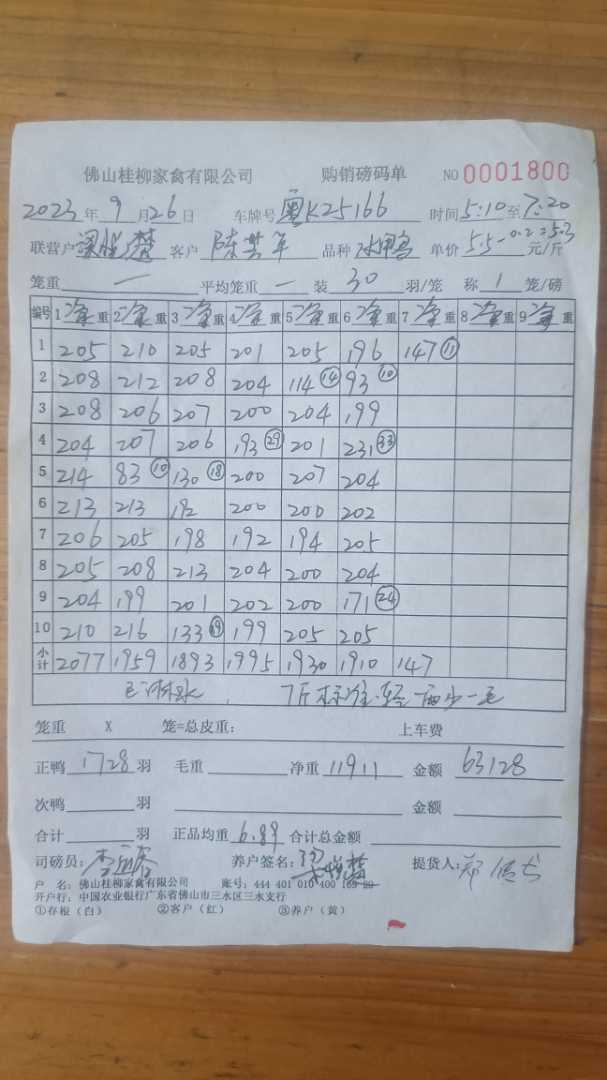 佛山桂柳家禽有限公司 购销磅码单 NO 0001800
2023年9月26日 车牌号 粤K25166 时间5:10至7:20
联营户 客户 陈 年 品种 水鸭 单价 5.5-0.2=5.3 元/斤
笼重 一 平均笼重 一 装 30 羽/笼 称 1 笼/磅
编号 1净重 2净重 3净重 4净重 5净重 6净重 7净重 8净重 9净重
1 205 210 205 201 205 196 147⑪
2 208 212 208 204 114⑭ 93⑩
3 208 206 207 200 204 199
4 204 207 206 193㉙ 201 231㉝
5 214 83⑩ 130⑱ 200 207 204
6 213 213 192 200 200 202
7 206 205 198 192 194 205
8 205 208 213 204 200 204
9 204 199 201 202 200 171㉔
10 210 216 133⑲ 199 205 205
小计 2077 1959 1893 1995 1930 1910 147
7斤标准.轻 两少一毛
笼重 X 笼=总皮重: 上车费
正鸭 1728 羽 毛重 净重 11911 金额 63128
次鸭 羽 金额
合计 羽 正品均重 6.89 合计总金额
司磅员: 养户签名: 提货人:
户 名: 佛山桂柳家禽有限公司 账号: 444 401 010 400 169 89
开户行: 中国农业银行广东省佛山市三水区三水支行
①存根（白） ②客户（红） ③养户（黄）